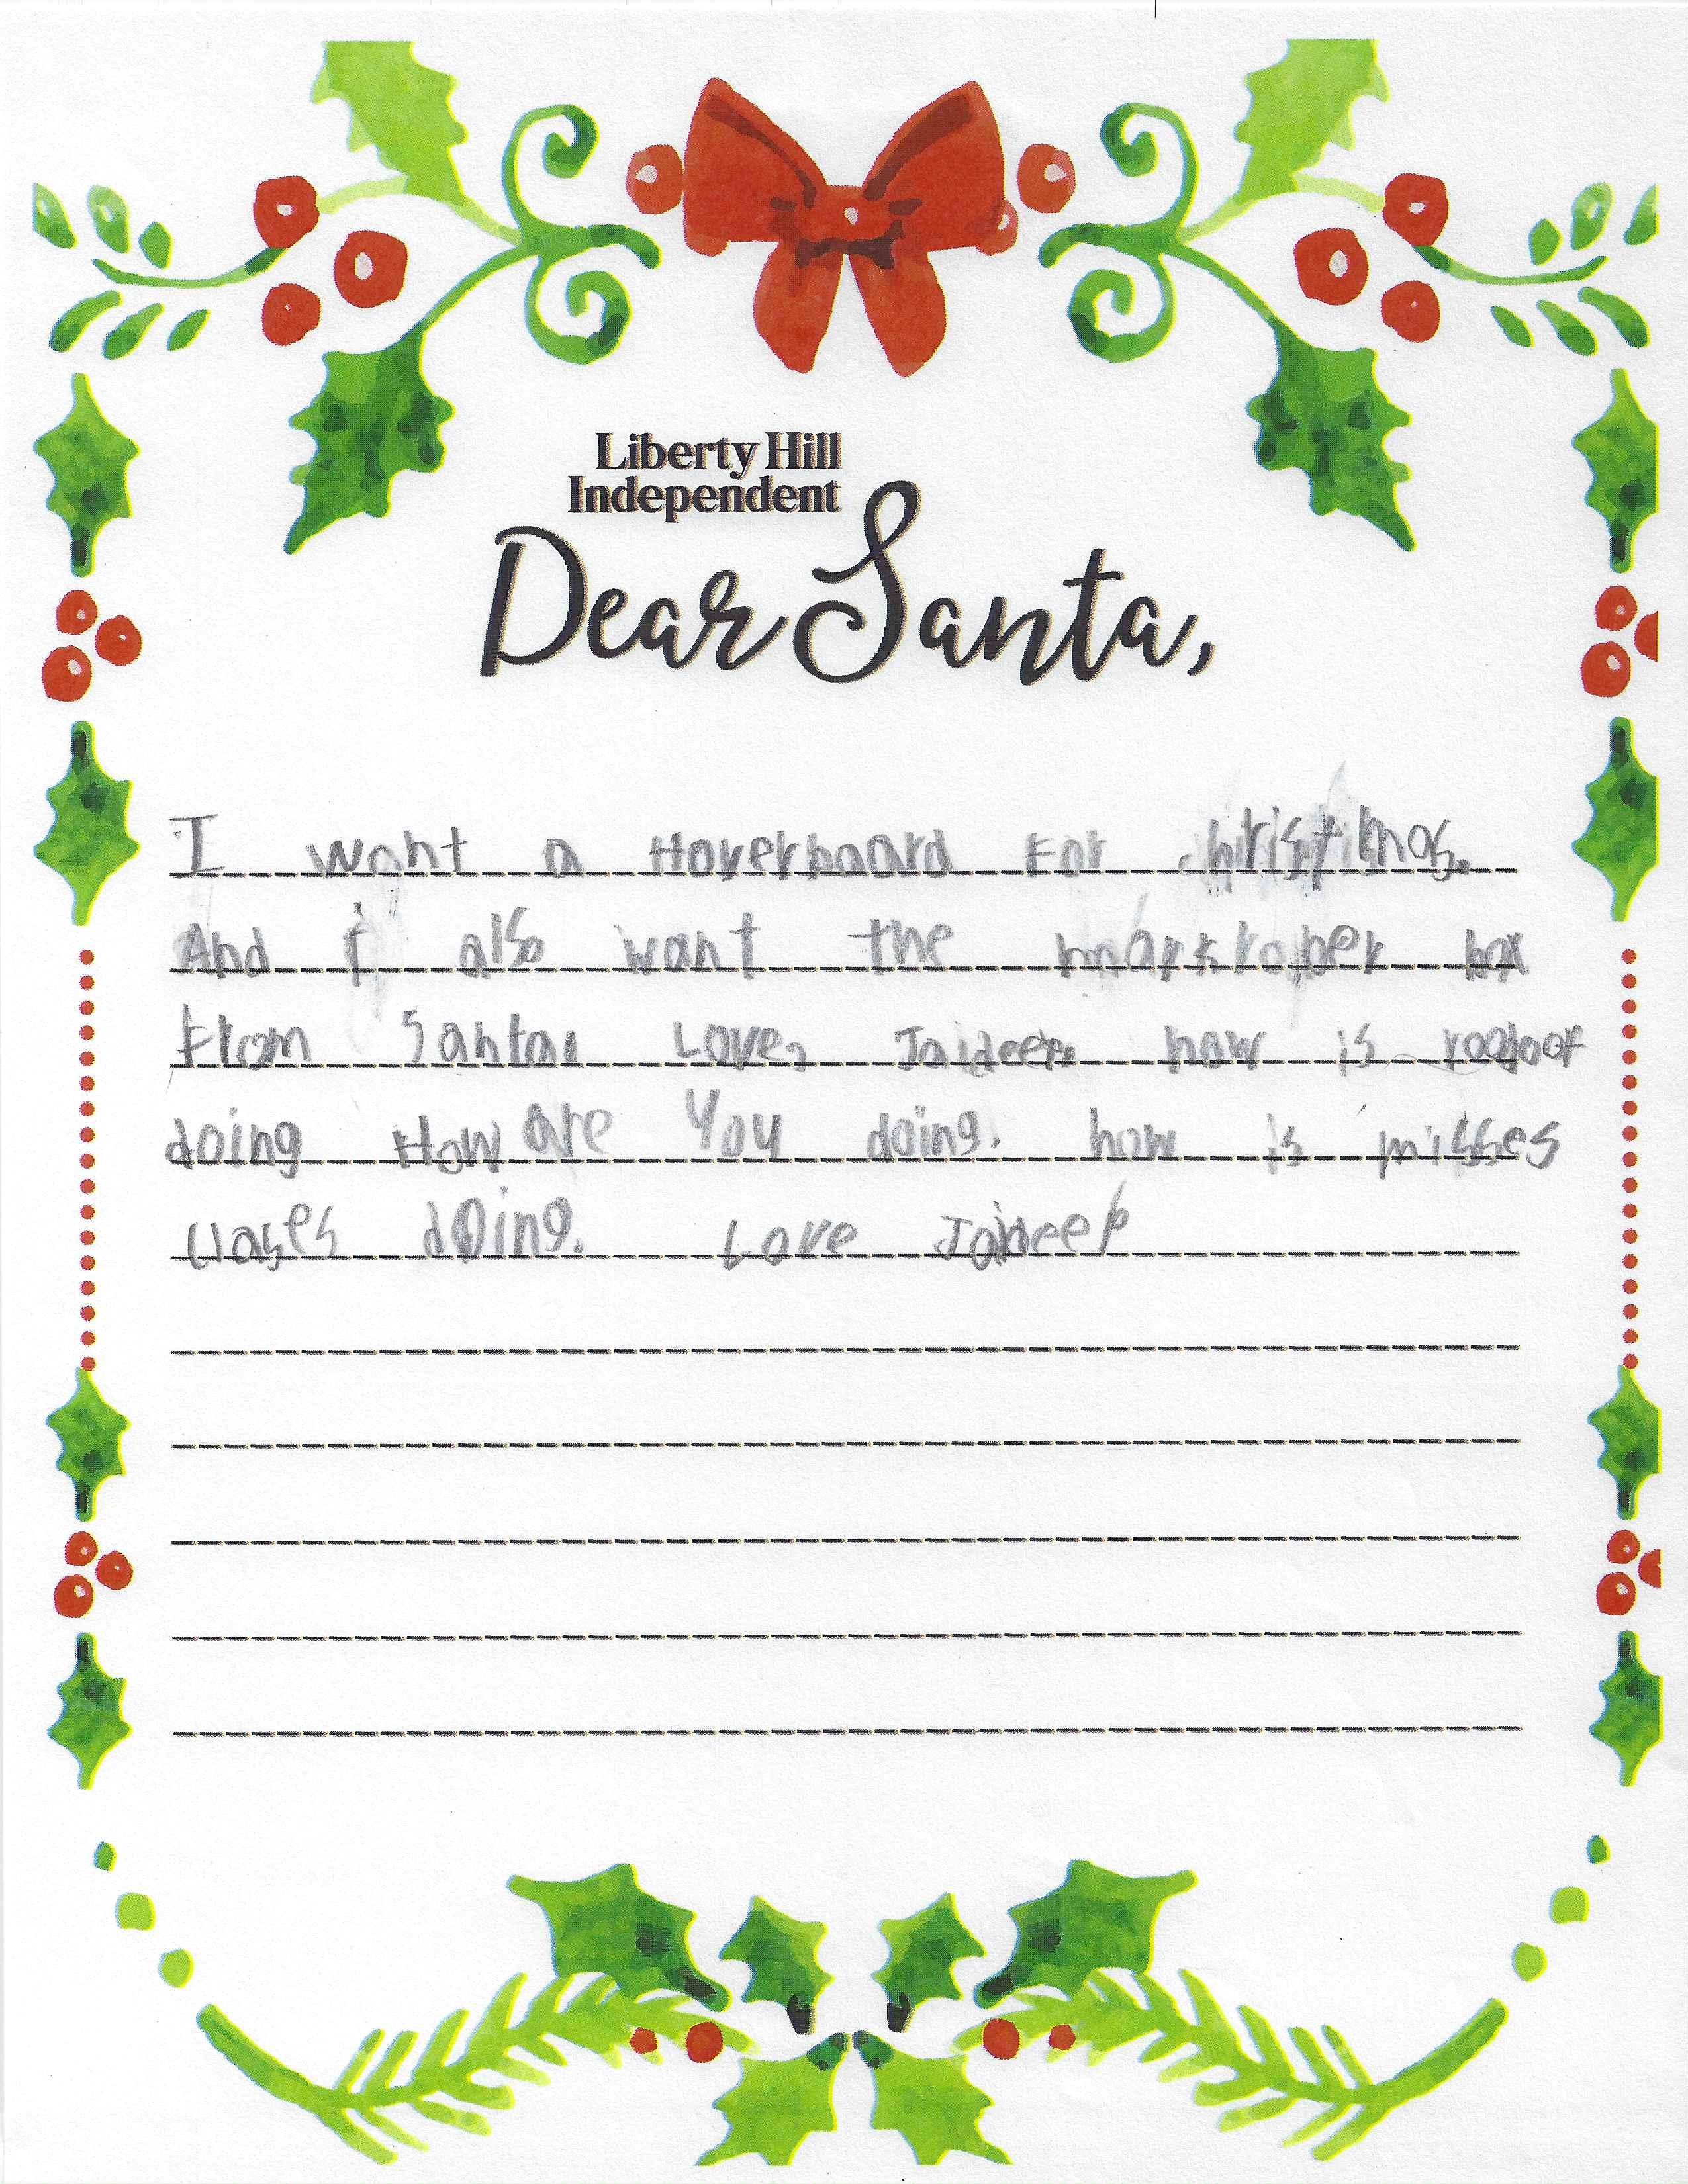 Liberty Hill
Independent
Dear Santa,
I want a Hoverboard For christmas.
And I also want the mark rober box
From Santa. Love, Jaideep. how is roodoof
doing How are You doing. how is misses
clases doing. Love Jaideep